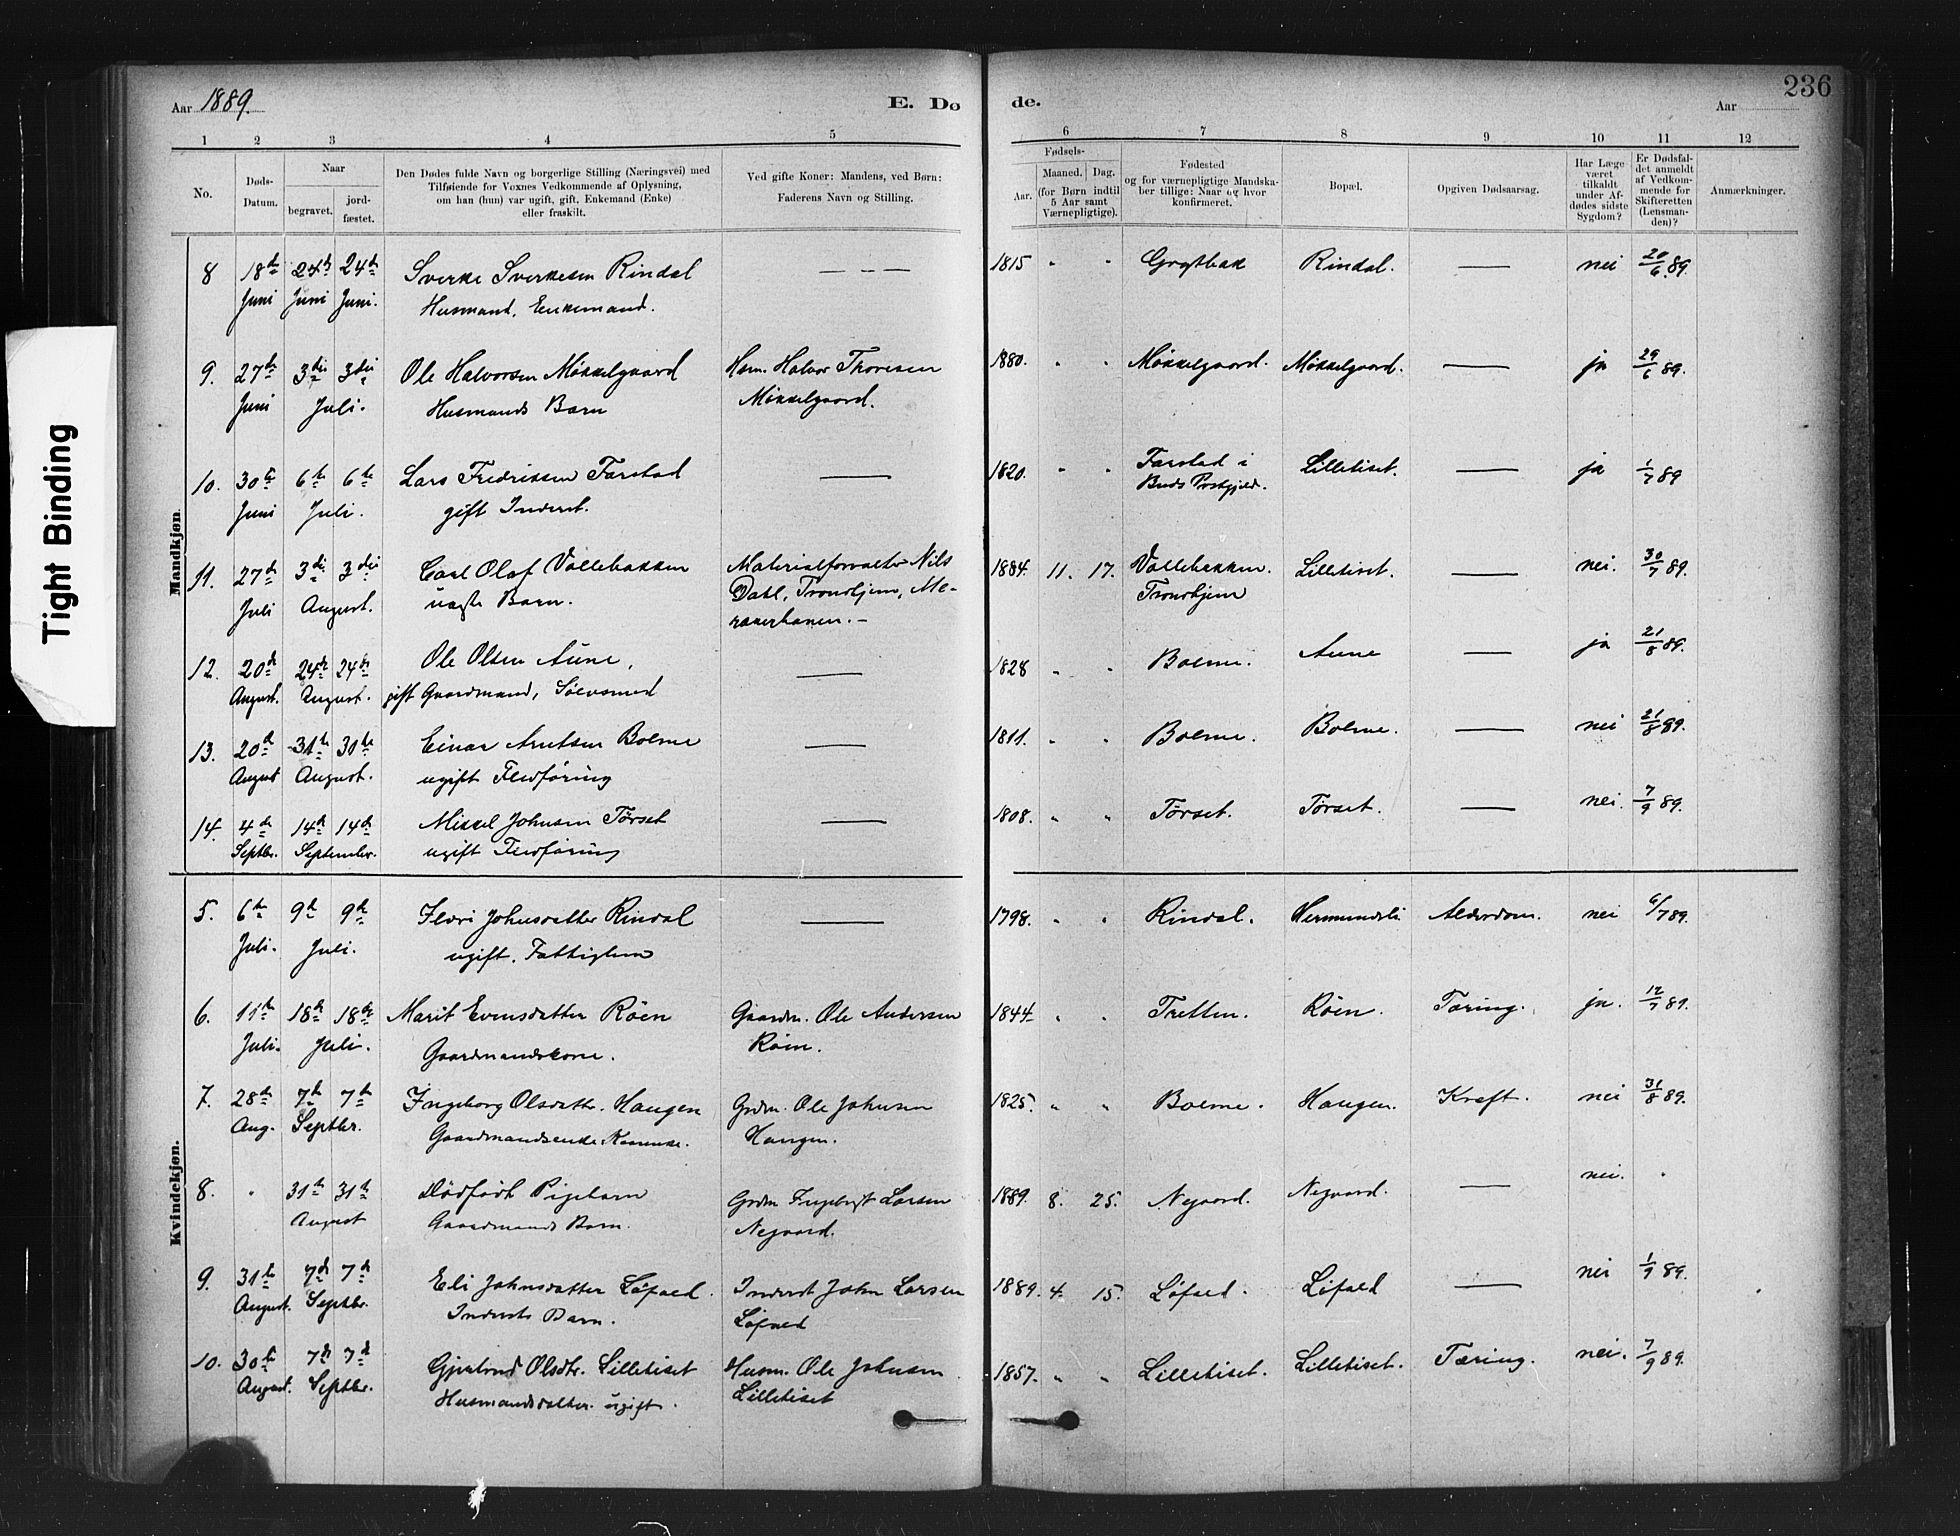 Tight Binding
236
Aar 1889. E. Dø de. Aar
1 2 3 4 5 6 7 8 9 10 11 12
No.
Døds-
Datum.
Naar
begravet.
jord-
fæstet.
Den Dødes fulde Navn og borgerlige Stilling (Næringsvei) med
Tilføiende for Voxnes Vedkommende af Oplysning,
om han (hun) var ugift, gift, Enkemand (Enke)
eller fraskilt.
Ved gifte Koner: Mandens, ved Børn:
Faderens Navn og Stilling.
Fødsels-
Aar.
Maaned. Dag.
(for Børn indtil
5 Aar samt
Værnepligtige).
Fødested
og for værnepligtige Mandska-
ber tillige: Naar og hvor
konfirmeret.
Bopæl.
Opgiven Dødsaarsag.
Har Læge
været
tilkaldt
under Af-
dødes sidste
Sygdom?
Er Dødsfal-
det anmeldt
af Vedkom-
mende for
Skifteretten
(Lensman-
den)?
Anmærkninger.
Mandkjøn.
8 18de 24de 24de Sverke Sverkesen Rindal — — — 1815 " " Grytbak Rindal. — nei 20/6 89.
Juni Juni Juni. Husmand, Enkemand.
9. 27de 3die 3die Ole Halvorsen Mikkelgaard Hsm. Halvor Thoresen 1880. " " Mikkelgaard. Mikkelgaard. — ja 29/6 89.
Juni Juli. Husmands Barn Mikkelgaard.
10. 30te 6te 6te Lars Fredriksen Farstad — 1820. " " Farstad i Lilletiset. — ja 1/7 89
Juni Juli. gift Inderst. Buds Præstgjeld.
11. 27de 3die 3die Carl Olaf Vollebakken Materialforvalter Nils 1884. 11. 17. Vollebakken. Lilletiset. — nei. 30/7 89.
Juli August. uægte Barn. Dahl, Trondhjem, Me- Trondhjem
rakerbanen. -
12. 20de 24de 24de Ole Olsen Aune, — 1828 " " Bolme. Aune — ja 21/8 89.
August. August. gift Gaardmand, Sølvsmed
13. 20de 31te 31te Einar Arntsen Bolme — 1811. " " Bolme. Bolme. — nei 21/8 89.
August August. ugift Flodføring
14. 4de 14de 14de Mikkel Johnsen Tørset — 1808. " " Tørset. Tørset. — nei. 7/9 89.
Septbr. September. ugift Flodføring
Kvindekjøn.
5. 6te 9de 9de Johnsdatter Rindal — 1798. " " Rindal. Hermundsli Alderdom. nei 6/7 89.
Juli. Juli. ugift. Fattiglem
6. 11te 18de 18de Marit Evensdatter Röen Gaardm. Ole Andersen 1844 " " Tretten. Röen. Tæring. ja. 12/7 89.
Juli. Juli. Gaardmandskone. Röen.
7. 28de 7de 7de Ingeborg Olsdatr. Haugen Grdm. Ole Johnsen 1825. " " Bolme. Haugen. Kræft. nei 31/8 89.
Aug. Septbr. Gaardmandsenke. Haugen.
8. " 31te 31te Dödfödt Pigebarn Grdm Ingebrigt Larsen 1889. 8. 25. Negaard. Negaard. — nei. "
August Gaardmands Barn. Negaard.
9. 31te 7de 7de Eli Johnsdatter Löfald. Inderst John Larsen 1889. 4. 15. Löfald. Löfald — nei 1/9 89.
August. Septbr. Indersts Barn. Löfald
10. 30te 7de 7de Gjertrud Olsdtr. Lilletiset Husm. Ole Johnsen 1857. " " Lilletiset. Lilletiset. Tæring. nei. 7/9 89.
August. Septbr. Husmandsdatter. ugift. Lilletiset